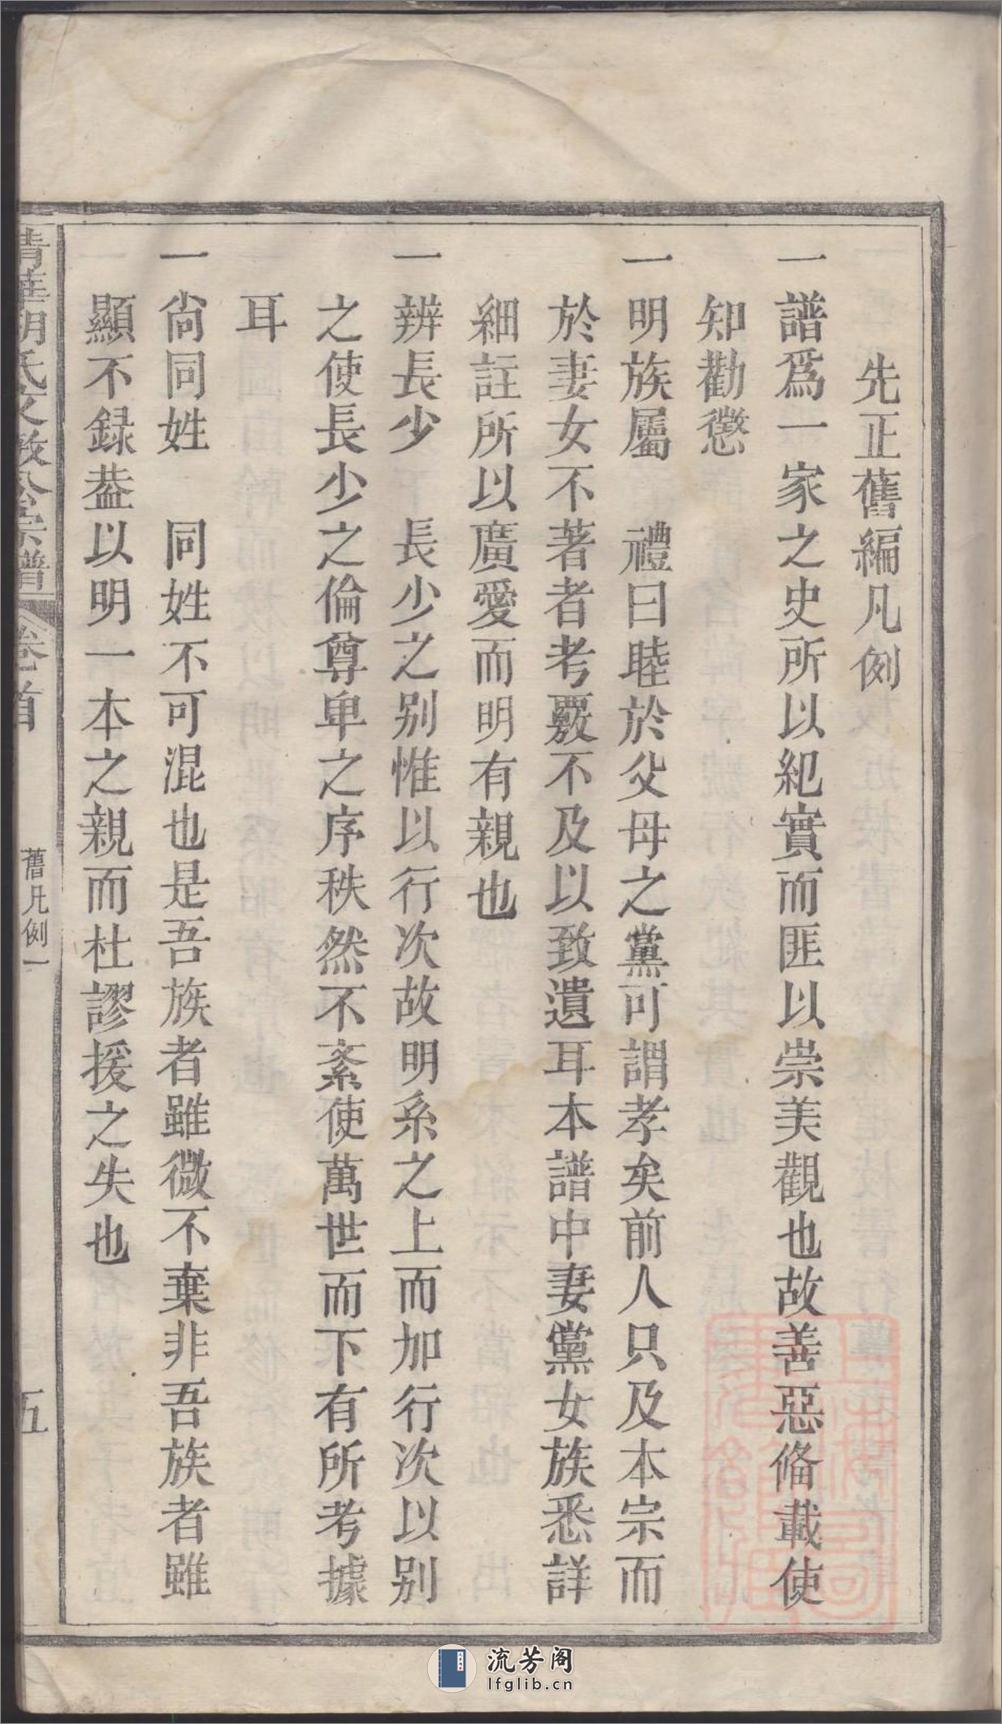 先正舊編凡例
一譜爲一家之史所以紀實而匪以崇美觀也故善惡偹載使
知勸懲
一明族屬　禮曰睦於父母之黨可謂孝矣前人只及本宗而
於妻女不著者考覈不及以致遺耳本譜中妻黨女族悉詳
細註所以廣愛而明有親也
一辨長少　長少之别惟以行次故明系之上而加行次以别
之使長少之倫尊卑之序秩然不紊使萬世而下有所考據
耳
一尙同姓　同姓不可混也是吾族者雖微不棄非吾族者雖
顯不録葢以明一本之親而杜謬援之失也
清華胡氏文敏公宗譜 卷首 舊凡例一 五
流芳阁
lfglib.cn